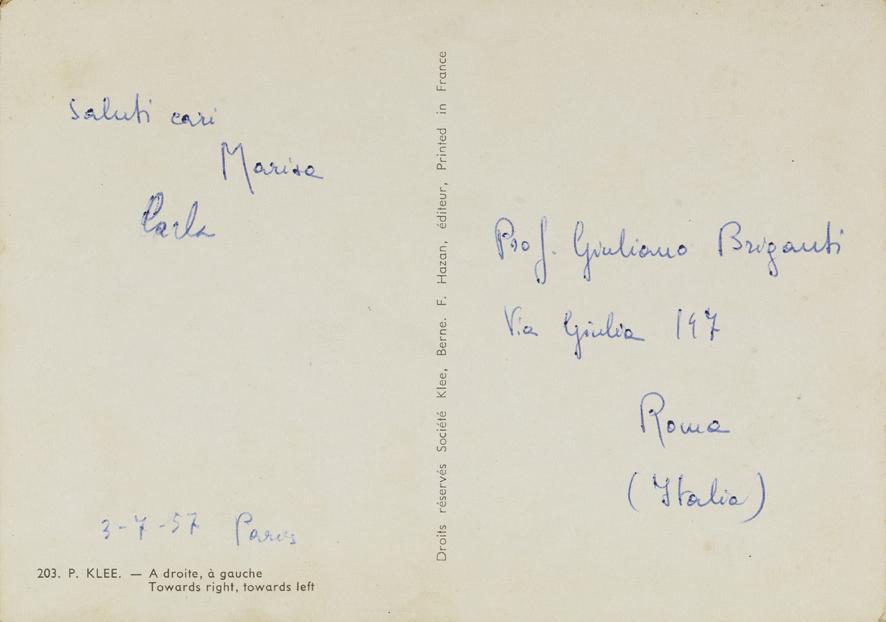 Saluti cari
Marisa
Carla
3-7-57 Paris
203. P. KLEE. — A droite, à gauche
Towards right, towards left
Droits réservés Société Klee, Berne. F. Hazan, éditeur, Printed in France
Prof. Giuliano Briganti
Via Giulia 197
Roma
(Italia)